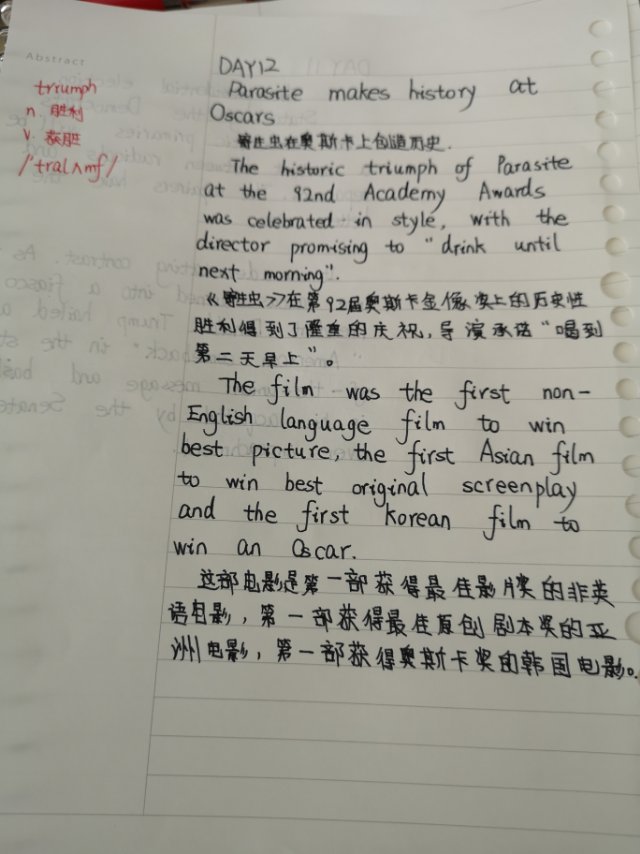 Abstract
trrumph
n. 胜利
v. 获胜
/'traIʌmf/
DAY12
Parasite makes history at
Oscars
寄生虫在奥斯卡上创造历史.
The historic triumph of Parasite
at the 92nd Academy Awards
was celebrated in style, with the
director promising to "drink until
next morning".
《寄生虫》在第92届奥斯卡金像奖上的历史性
胜利得到了隆重的庆祝,导演承诺"喝到
第二天早上"。
The film was the first non-
English language film to win
best picture, the first Asian film
to win best original screenplay
and the first Korean film to
win an Oscar.
这部电影是第一部获得最佳影片奖的非英
语电影,第一部获得最佳原创剧本奖的亚
洲电影,第一部获得奥斯卡奖的韩国电影。